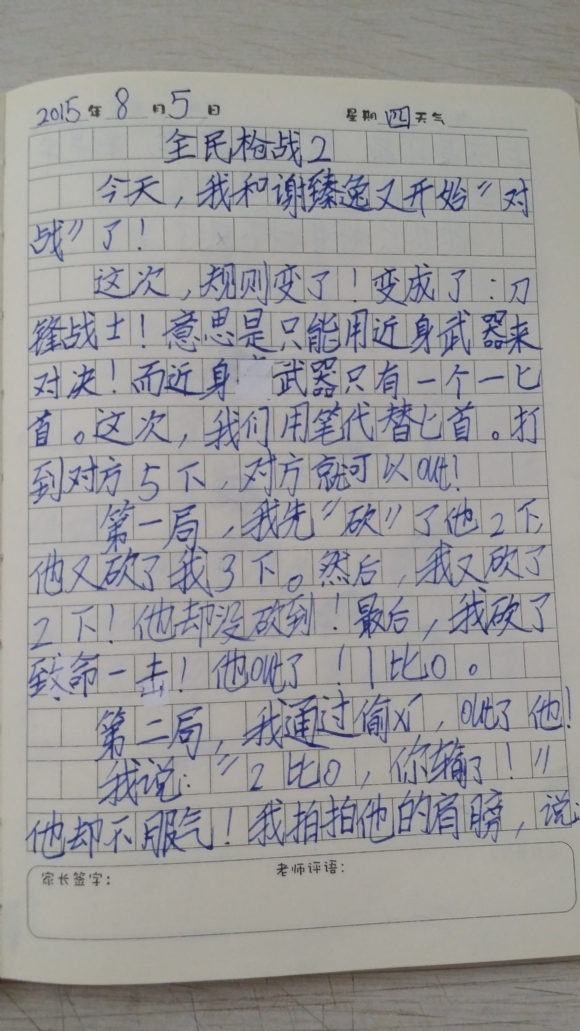 2015年8月5日 星期四天气
全民枪战2
今天，我和谢臻逸又开始"对
战"了！
这次，规则变了！变成了：刀
锋战士！意思是只能用近身武器来
对决！而近身武器只有一个一匕
首。这次，我们用笔代替匕首。打
到对方5下，对方就可以out!
第一局，我先"砍"了他2下，
他又砍了我3下。然后，我又砍了
2下！他却没砍到！最后，我砍了
致命一击！他out了！1比0。
第二局，我通过偷刈，out了他！
我说："2比0，你输了！"
他却不服气！我拍拍他的肩膀，说：
家长签字： 老师评语：